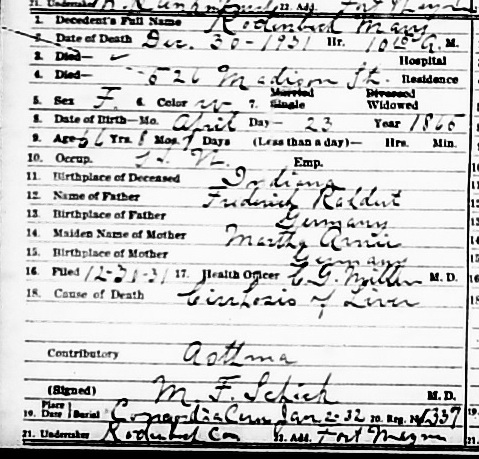 21. Undertaker 22. Add. Fort Wayne
1. Decedent's Full Name Rodenbeck Mary
2. Date of Death Dec. 30 - 1931 Hr. 10 A. M.
3. Died— ✓ Hospital
4. Died— 526 Madison St. Residence
5. Sex F. 6. Color W. 7. Married Single Divorced Widowed
8. Date of Birth—Mo. April Day— 23 Year 1865
9. Age 66 Yrs. 8 Mos. 7 Days (Less than a day)— Hrs. Min.
10. Occup. H. W. Emp.
11. Birthplace of Deceased Indiana
12. Name of Father Frederick
13. Birthplace of Father Germany
14. Maiden Name of Mother Martha
15. Birthplace of Mother Germany
16. Filed 12-31-31 17. Health Officer C. G. Miller M. D.
18. Cause of Death Cirrhosis of Liver
Contributory Asthma
(Signed) M. F. Schick M. D.
19. Place Date } Burial Concordia Cem Jan 2-32 20. Reg. No. 1337
21. Undertaker 22. Add. Fort Wayne